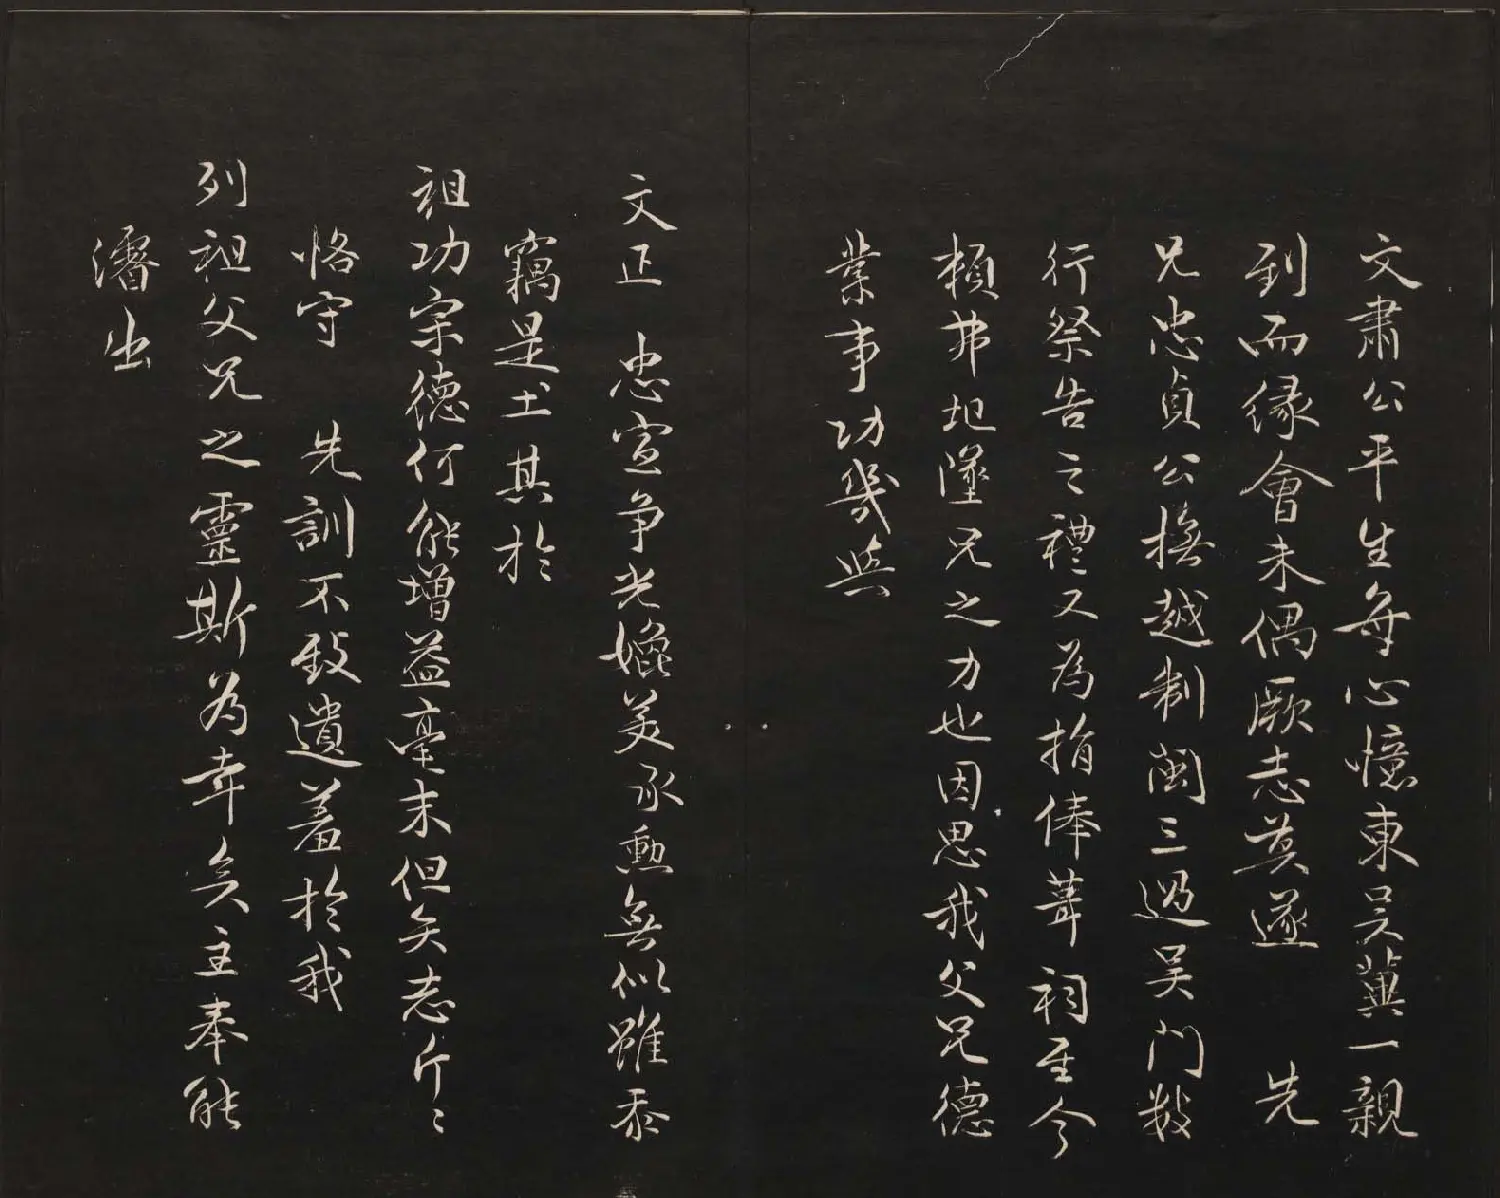 文肅公平生每心憶東吳冀一親
到而緣會未偶厥志莫遂 先
兄忠貞公撫越制閩三過吳門數
行祭告之禮又為捐俸葺祠至今
頼弗圮墜兄之力也因思我父兄德
業事功幾與
文正 忠宣爭光媲美承勳無似雖忝
竊是土其於
祖功宗德何能增益毫末但矢志斤〻
恪守 先訓不致遺羞於我
列祖父兄之靈斯為幸矣主奉能
濬出